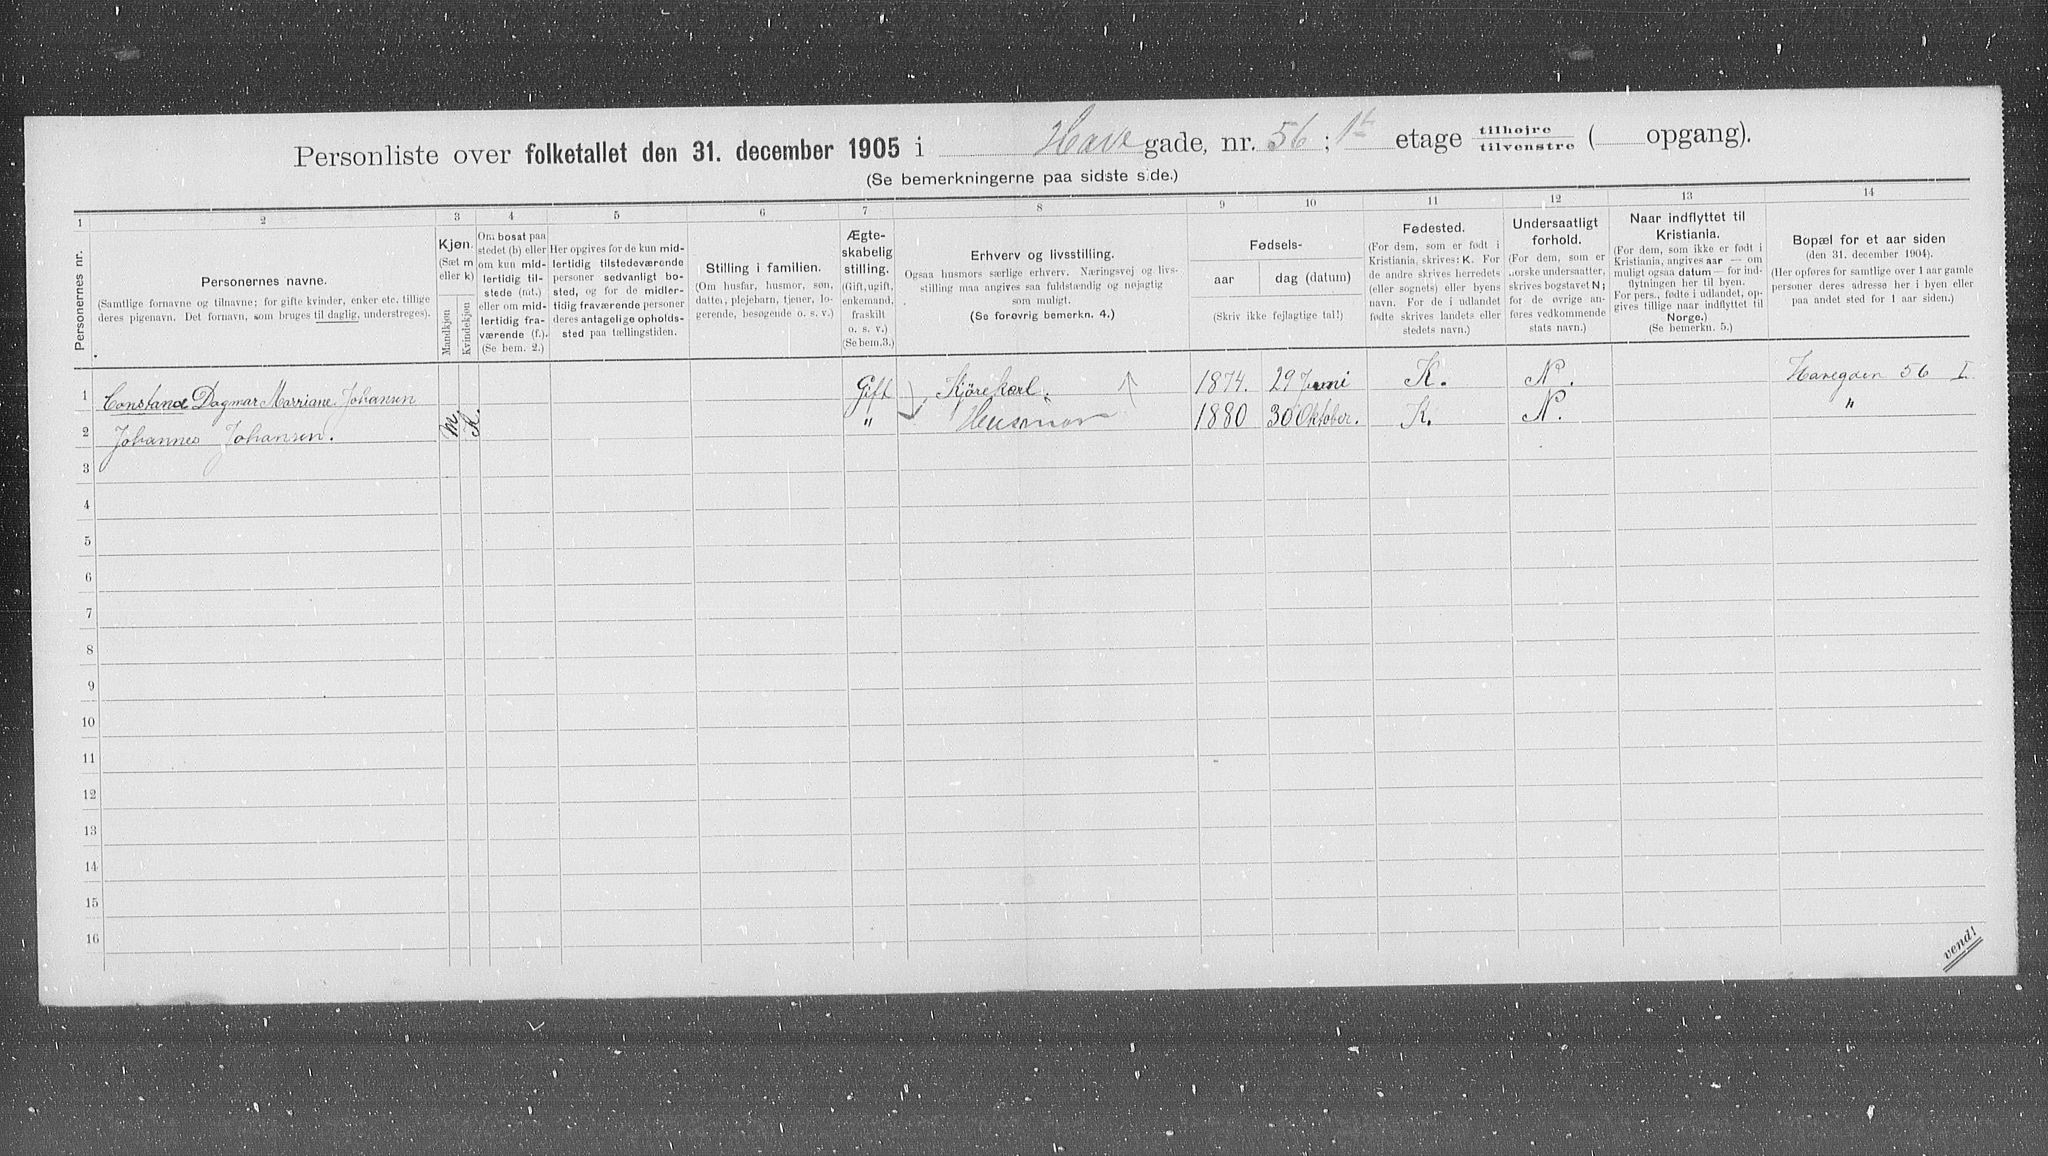 Personliste over folketallet den 31. december 1905 i Have gade, nr. 56 ; 1ste etage tilhøjre tilvenstre ( opgang).
(Se bemerkningerne paa sidste side.)
1 2 3 4 5 6 7 8 9 10 11 12 13 14
Personernes nr.
Personernes navne.
(Samtlige fornavne og tilnavne; for gifte kvinder, enker etc. tillige
deres pigenavn. Det fornavn, som bruges til daglig, understreges).
Kjøn.
(Sæt m
eller k)
Mandkjøn
Kvindekjøn
Om bosat paa
stedet (b) eller
om kun mid-
lertidig til-
stede (mt.)
eller om mid-
lertidig fra-
værende (f.).
(Se bem. 2.)
Her opgives for de kun mid-
lertidig tilstedeværende
personer sedvanlig bo-
sted, og for de midler-
tidig fraværende personer
deres antagelige opholds-
sted paa tællingstiden.
Stilling i familien.
(Om husfar, husmor, søn,
datter, plejebarn, tjener, lo-
gerende, besøgende o. s. v.)
Ægte-
skabelig
stilling.
(Gift, ugift,
enkemand,
fraskilt
o. s. v.)
(Se bem.3.)
Erhverv og livsstilling.
Ogsaa husmors særlige erhverv. Næringsvej og livs-
stilling maa angives saa fuldstændig og nøjagtig
som muligt.
(Se forøvrig bemerkn. 4.)
Fødsels-
aar
dag (datum)
(Skriv ikke fejlagtige tal!)
Fødested.
(For dem, som er født i
Kristiania, skrives: K. For
de andre skrives herredets
(eller sognets) eller byens
navn. For de i udlandet
fødte skrives landets eller
stedets navn.)
Undersaatligt
forhold.
(For dem, som er
norske undersaatter,
skrives bogstavet N;
for de øvrige an-
føres vedkommende
stats navn.)
Naar indflyttet til
Kristiania.
(For dem, som ikke er født i
Kristiania, angives aar — om
muligt ogsaa datum — for ind-
flytningen her til byen.
For pers., fødte i udlandet, op-
gives tillige naar indflyttet til
Norge.)
(Se bemerkn. 5.)
Bopæl for et aar siden
(den 31. december 1904).
(Her opføres for samtlige over 1 aar gamle
personer deres adresse her i byen eller
paa andet sted for 1 aar siden.)
1 Constance Dagmar Marriane Johansen Gift Kjörekarl. 1874. 29 Juni K. N. Havegaden 56 I.
2 Johannes Johansen. M. K. " Husmor 1880 30 Oktober. K. N. "
3
4
5
6
7
8
9
10
11
12
13
14
15
16
vend!